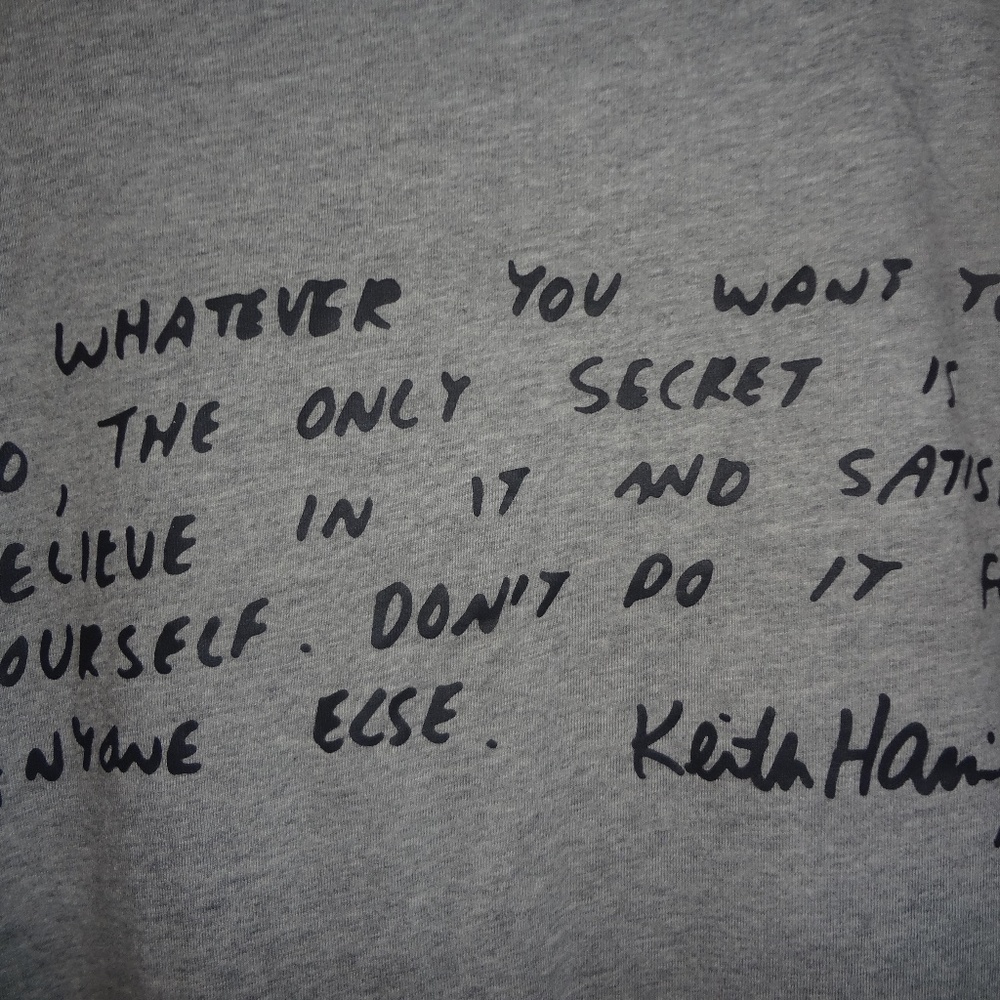 WHATEVER YOU WANT TO
O, THE ONLY SECRET IS
ELIEVE IN IT AND SATIS
OURSELF. DON'T DO IT F
NYONE ELSE. Keith Hari